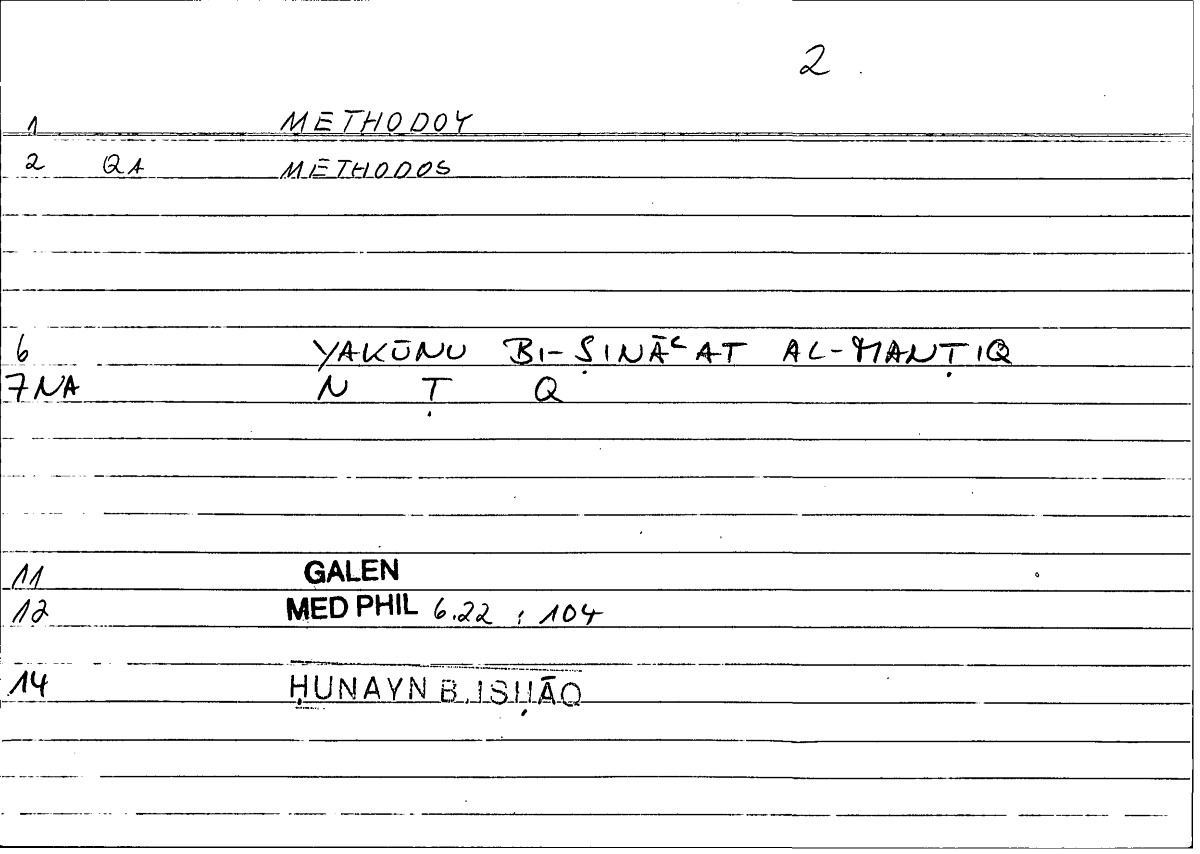 2
1 METHODOY
2 QA METHODOS
6 YAKŪNU BI-ṢINĀᶜAT AL-MANṬIQ
7 NA N Ṭ Q
11 GALEN
12 MED PHIL 6.22 : 104
14 ḤUNAYN B. ISḤĀQ